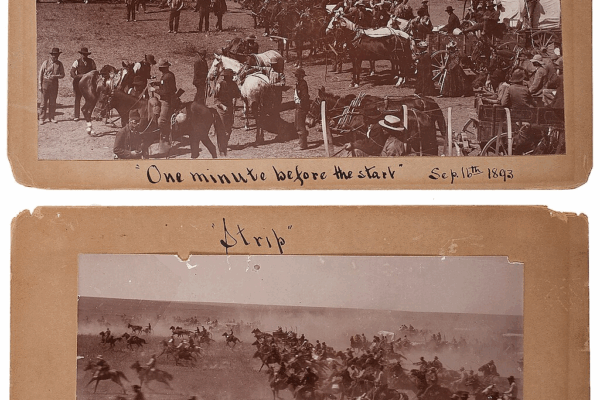 "One minute before the start" Sep. 16th 1893
"Strip"